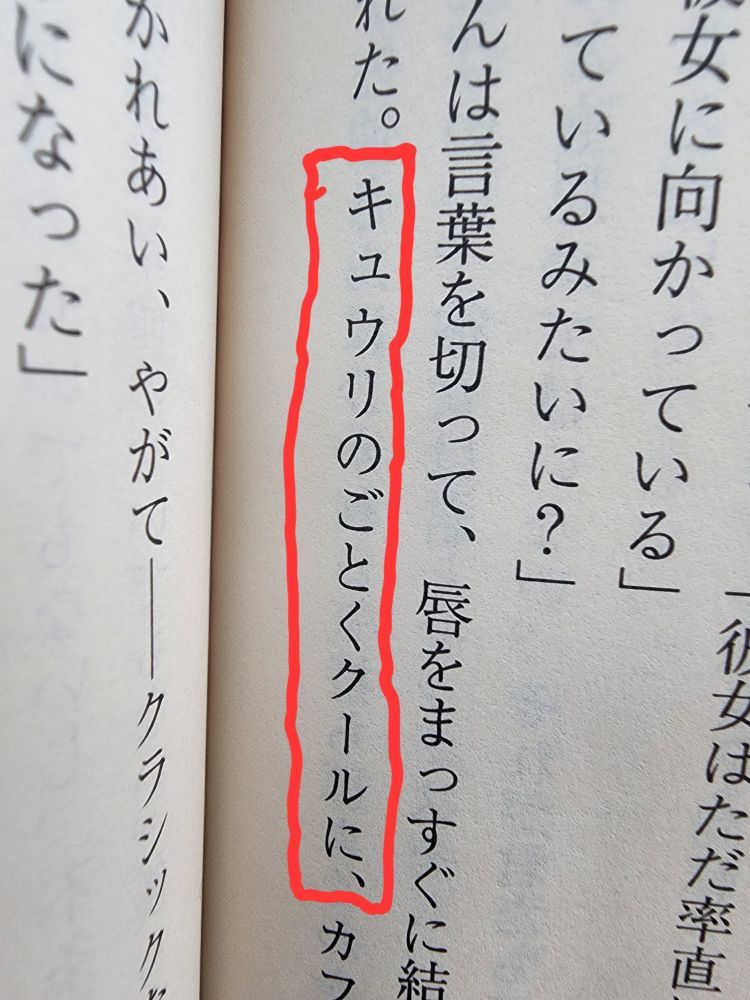 「彼女はただ率直
彼女に向かっている」
ているみたいに？」
んは言葉を切って、唇をまっすぐに結
れた。キュウリのごとくクールに、カフ
かれあい、やがて――クラシック
になった」